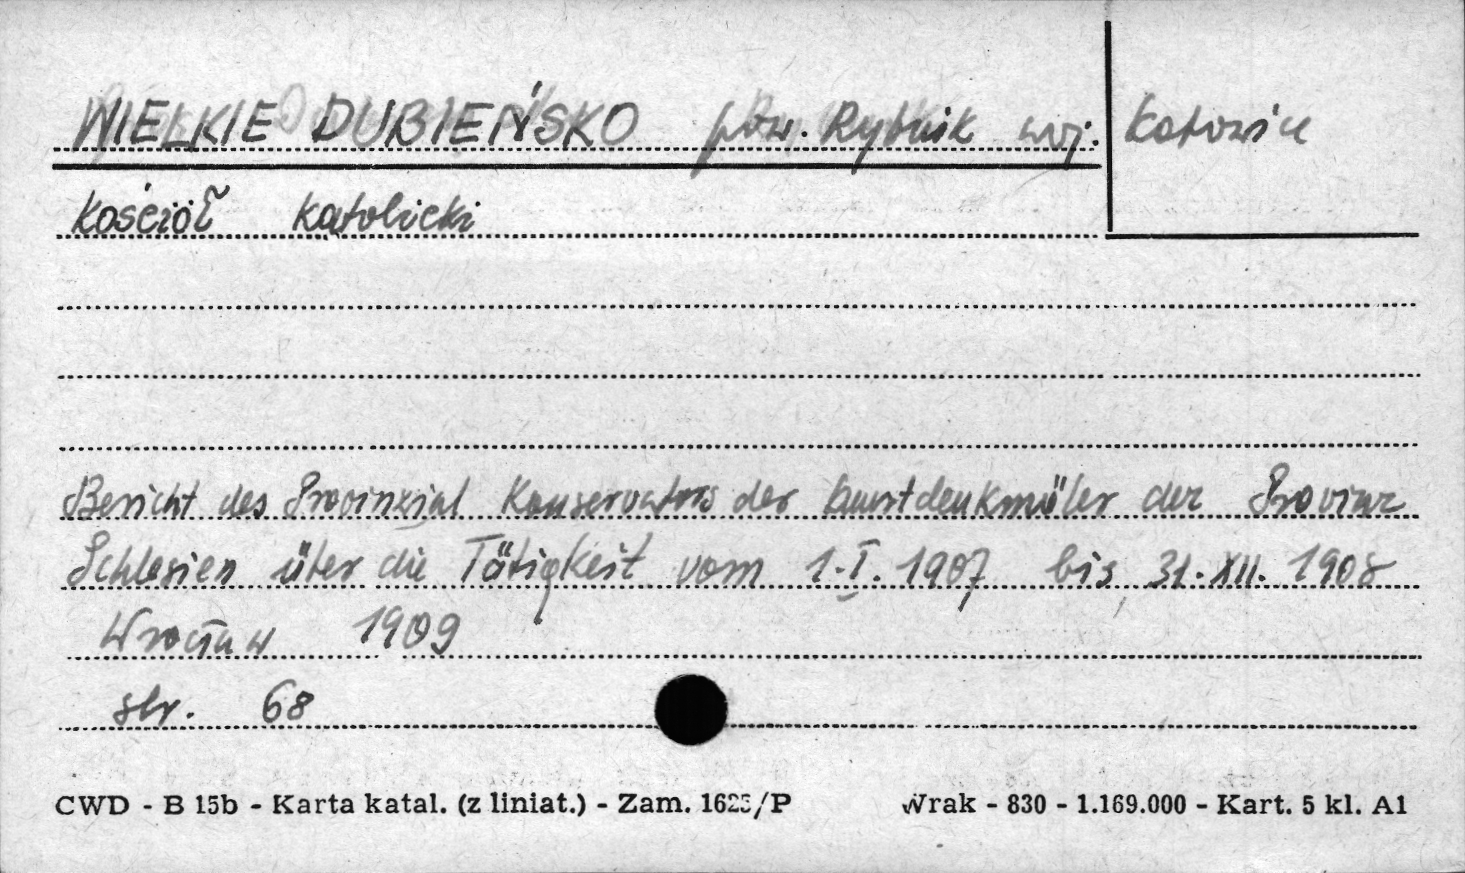 WIELKIE DUBIEŃSKO pow. Rybnik woj. Katowice
Kościół katolicki
Bericht des Provinzial Konservators der Kunstdenkmäler der Provinz
Schlesien über die Tätigkeit vom 1.I.1907 bis 31.XII.1908
Wrocław 1909
str. 68
CWD - B 15b - Karta katal. (z liniat.) - Zam. 1625/P Wrak - 830 - 1.169.000 - Kart. 5 kl. A1